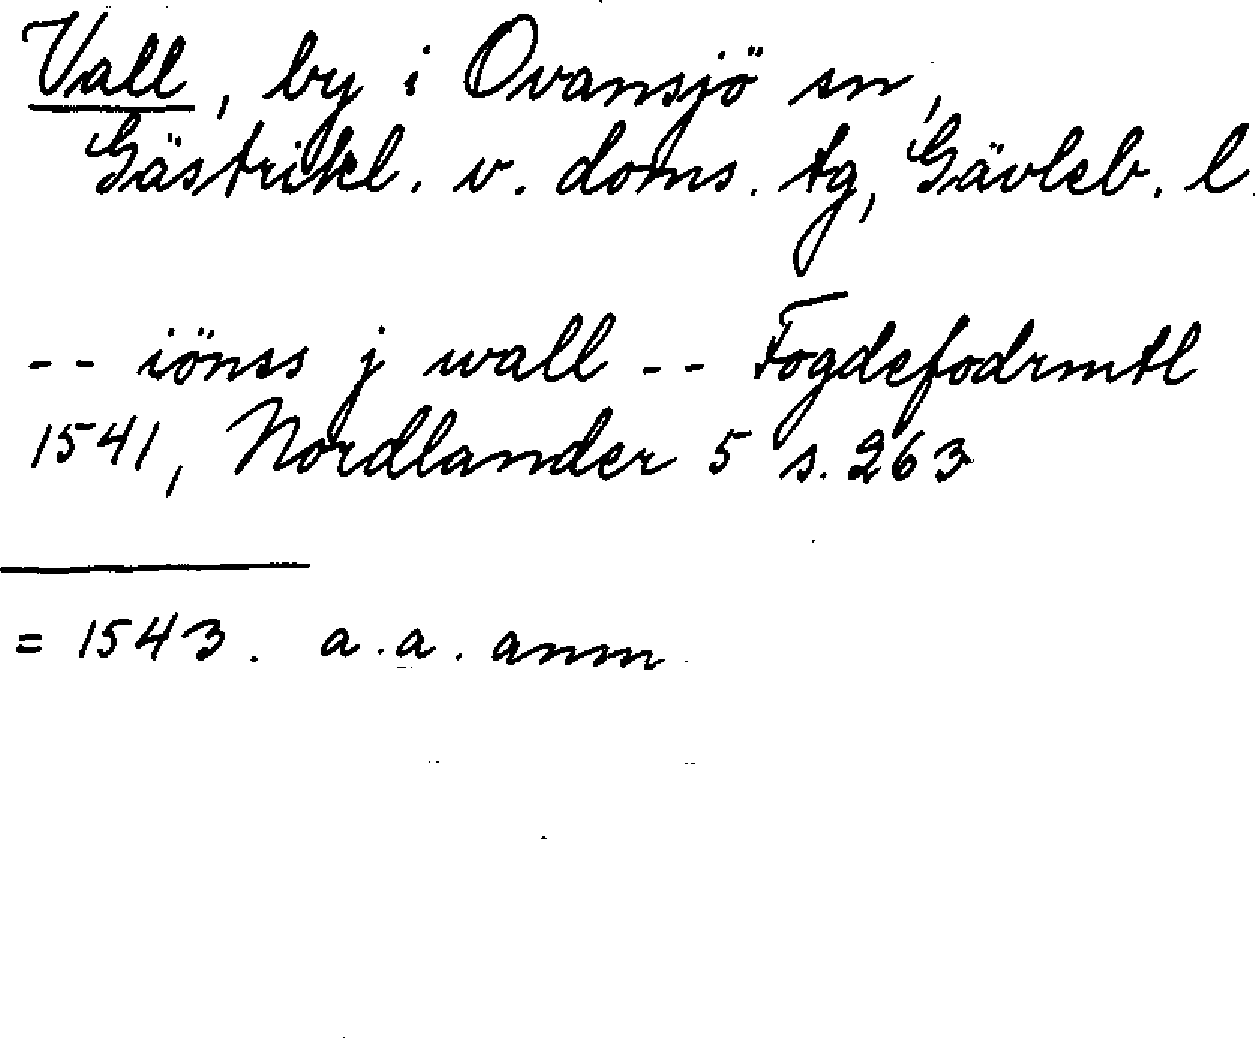 Vall, by i Ovansjö sn,
Gästrikl. v. doms. tg, Gävleb. l.
-- iönss j wall -- Fogdefodrmtl
1541, Nordlander 5 s. 263
= 1543. a.a. anm